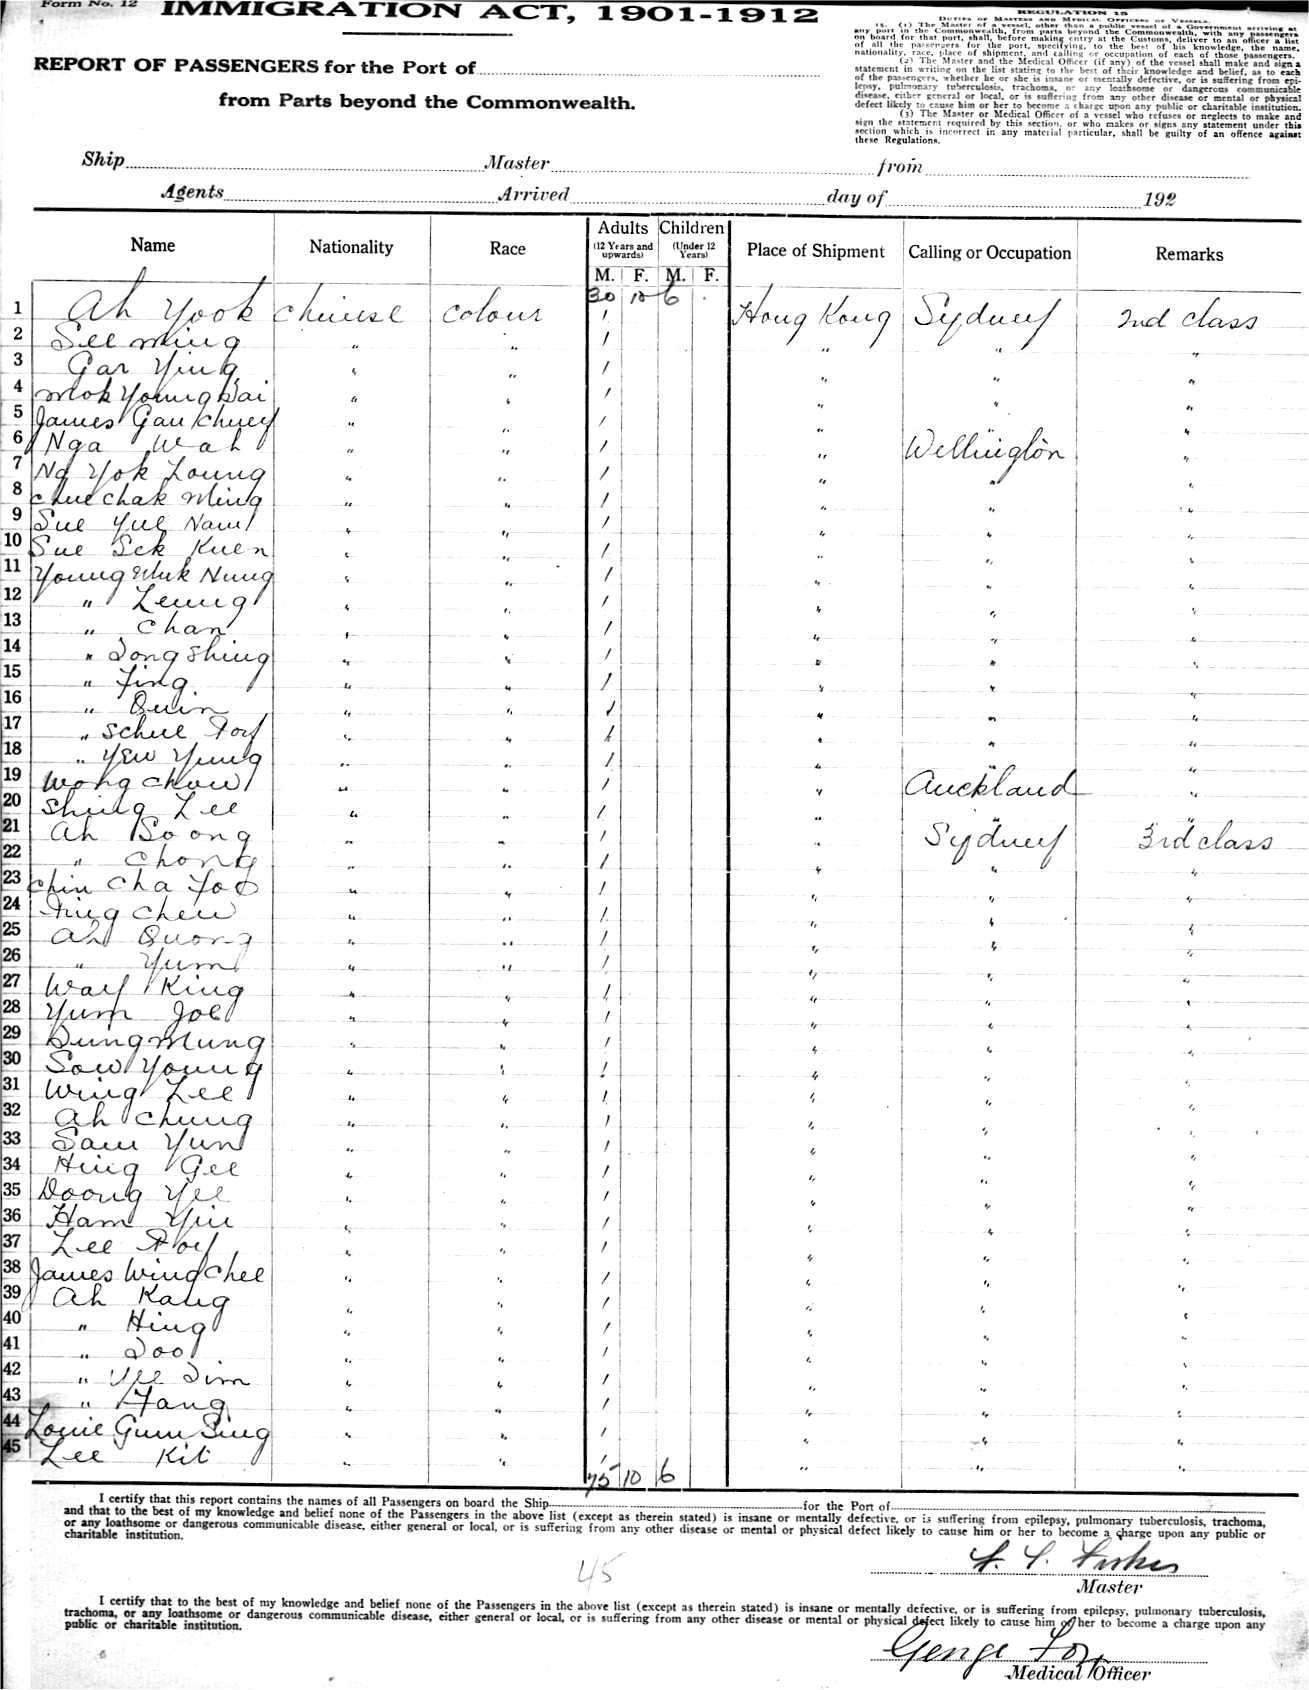 Form No. 12
IMMIGRATION ACT, 1901-1912
REPORT OF PASSENGERS for the Port of
from Parts beyond the Commonwealth.
REGULATION 15
DUTIES OF MASTERS AND MEDICAL OFFICERS OF VESSELS.
15. (1) The Master of a vessel, other than a public vessel of a Government arriving at
any port in the Commonwealth, from parts beyond the Commonwealth, with any passengers
on board for that port, shall, before making entry at the Customs, deliver to an officer a list
of all the passengers for the port, specifying, to the best of his knowledge, the name,
nationality, race, place of shipment, and calling or occupation of each of those passengers.
(2) The Master and the Medical Officer (if any) of the vessel shall make and sign a
statement in writing on the list stating to the best of their knowledge and belief, as to each
of the passengers, whether he or she is insane or mentally defective, or is suffering from epi-
lepsy, pulmonary tuberculosis, trachoma, or any loathsome or dangerous communicable
disease, either general or local, or is suffering from any other disease or mental or physical
defect likely to cause him or her to become a charge upon any public or charitable institution.
(3) The Master or Medical Officer of a vessel who refuses or neglects to make and
sign the statement required by this section, or who makes or signs any statement under this
section which is incorrect in any material particular, shall be guilty of an offence against
these Regulations.
Ship Master from
Agents Arrived day of 192
Name Nationality Race Adults (12 Years and upwards) M. F. Children (Under 12 Years) M. F. Place of Shipment Calling or Occupation Remarks
30 10 6
1 Ah Yook Chinese Colour 1 Hong Kong Sydney 2nd class
2 See Ming " " 1 " " "
3 Gar Ying " " 1 " " "
4 Mok Young Dai " " 1 " " "
5 James Gau Chuey " " 1 " " "
6 Nga Wah " " 1 " Wellington "
7 Ng Yok Loung " " 1 " " "
8 Chue Chak Ming " " 1 " " "
9 Sue Yue Nam " " 1 " " "
10 Sue Sek Kuen " " 1 " " "
11 Young Nung " " 1 " " "
12 " Leung " " 1 " " "
13 " Chan " " 1 " " "
14 " Dong Shing " " 1 " " "
15 " Jing " " 1 " " "
16 " Quin " " 1 " " "
17 " Schue Foy " " 1 " " "
18 " Yew Yung " " 1 " " "
19 Wong Chow " " 1 " Auckland "
20 Shing Lee " " 1 " " "
21 Ah Soong " " 1 " Sydney 3rd class
22 " Chong " " 1 " " "
23 Chin Cha Foo " " 1 " " "
24 Fing Chew " " 1 " " "
25 Ah Quong " " 1 " " "
26 " Yum " " 1 " " "
27 Way King " " 1 " " "
28 Yum Joe " " 1 " " "
29 Dung Mung " " 1 " " "
30 Sow Young " " 1 " " "
31 Wing Lee " " 1 " " "
32 Ah Chung " " 1 " " "
33 Sam Yun " " 1 " " "
34 Hing Gee " " 1 " " "
35 Doong Yee " " 1 " " "
36 Ham Yin " " 1 " " "
37 Lee Foy " " 1 " " "
38 James Wing Chee " " 1 " " "
39 Ah Kang " " 1 " " "
40 " Hing " " 1 " " "
41 " Doo " " 1 " " "
42 " Yee Dim " " 1 " " "
43 " Fang " " 1 " " "
44 Louie Gum Sing " " 1 " " "
45 Lee Kit " " 1 " " "
75 10 6
I certify that this report contains the names of all Passengers on board the Ship for the Port of
and that to the best of my knowledge and belief none of the Passengers in the above list (except as therein stated) is insane or mentally defective, or is suffering from epilepsy, pulmonary tuberculosis, trachoma,
or any loathsome or dangerous communicable disease, either general or local, or is suffering from any other disease or mental or physical defect likely to cause him or her to become a charge upon any public or
charitable institution.
45
Master
I certify that to the best of my knowledge and belief none of the Passengers in the above list (except as therein stated) is insane or mentally defective, or is suffering from epilepsy, pulmonary tuberculosis,
trachoma, or any loathsome or dangerous communicable disease, either general or local, or is suffering from any other disease or mental or physical defect likely to cause him or her to become a charge upon any
public or charitable institution.
George
Medical Officer